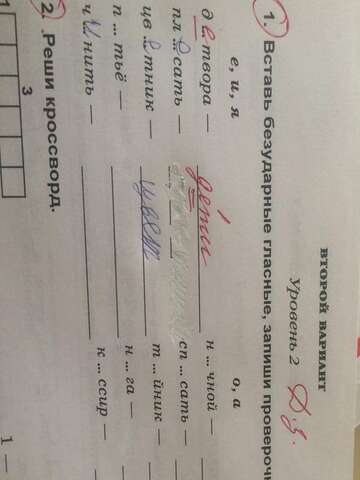 ВТОРОЙ ВАРИАНТ
Уровень 2 Д.з.
1. Вставь безударные гласные, запиши провероч
е, и, я о, а
д е твора — дети н ... чной —
пл я сать — сп ... сать —
цв е тник — цвет т ... йник —
п ... тьё — н ... га —
ч и нить — к ... ссир —
2. Реши кроссворд.
3
1
1 —